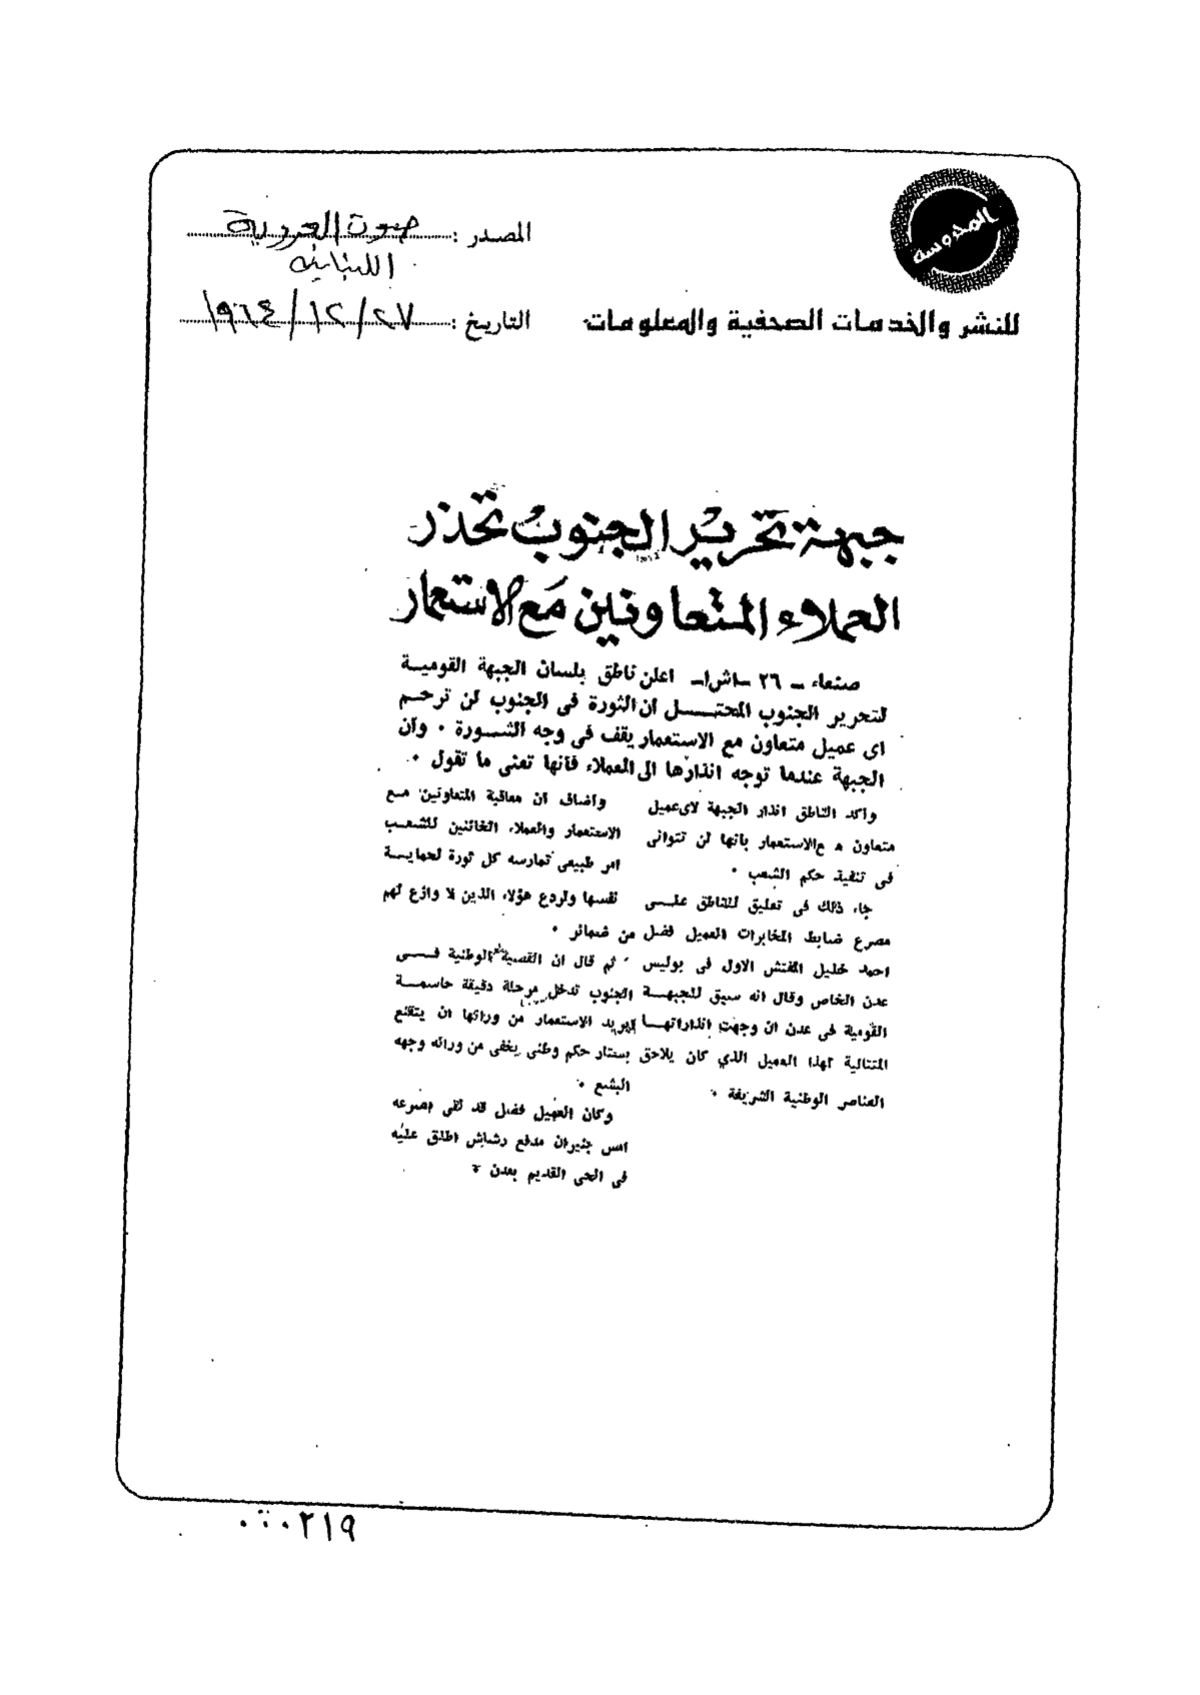 المحروسة
للنشر والخدمات الصحفية والمعلومات
المصدر : صوت العروبة
اللبنانية
التاريخ : ٢٧/ ١٢/ ١٩٦٤
جبهة تحرير الجنوب تحذر
العملاء المتعاونين مع الاستعمار
صنعاء ـ ٢٦ ـاشاـ اعلن ناطق بلسان الجبهة القومية
لتحرير الجنوب المحتل ان الثورة فى الجنوب لن ترحم
اى عميل متعاون مع الاستعمار يقف فى وجه الثورة ٠ وان
الجبهة عندما توجه انذارها الى العملاء فانها تعنى ما تقول ٠
واكد الناطق انذار الجبهة لاى عميل
متعاون مع الاستعمار بانها لن تتوانى
فى تنفيذ حكم الشعب ٠
جاء ذلك فى تعليق للناطق على
مصرع ضابط المخابرات العميل فضل
احمد خليل المفتش الاول فى بوليس
عدن الخاص وقال انه سبق للجبهة
القومية فى عدن ان وجهت انذاراتها
المتتالية لهذا العميل الذي كان يلاحق
العناصر الوطنية الشريفة ٠
واضاف ان معاقبة المتعاونين مع
الاستعمار والعملاء الخائنين للشعب
امر طبيعى تمارسه كل ثورة لحماية
نفسها ولردع هؤلاء الذين لا وازع لهم
من ضمائر ٠
ثم قال ان القضية الوطنية فى
الجنوب تدخل مرحلة دقيقة حاسمة
يريد الاستعمار من ورائها ان يتقنع
بستار حكم وطنى يخفى من ورائه وجهه
البشع ٠
وكان العميل فضل قد لقى مصرعه
امس بنيران مدفع رشاش اطلق عليه
فى الحى القديم بعدن ٠
٢١٩